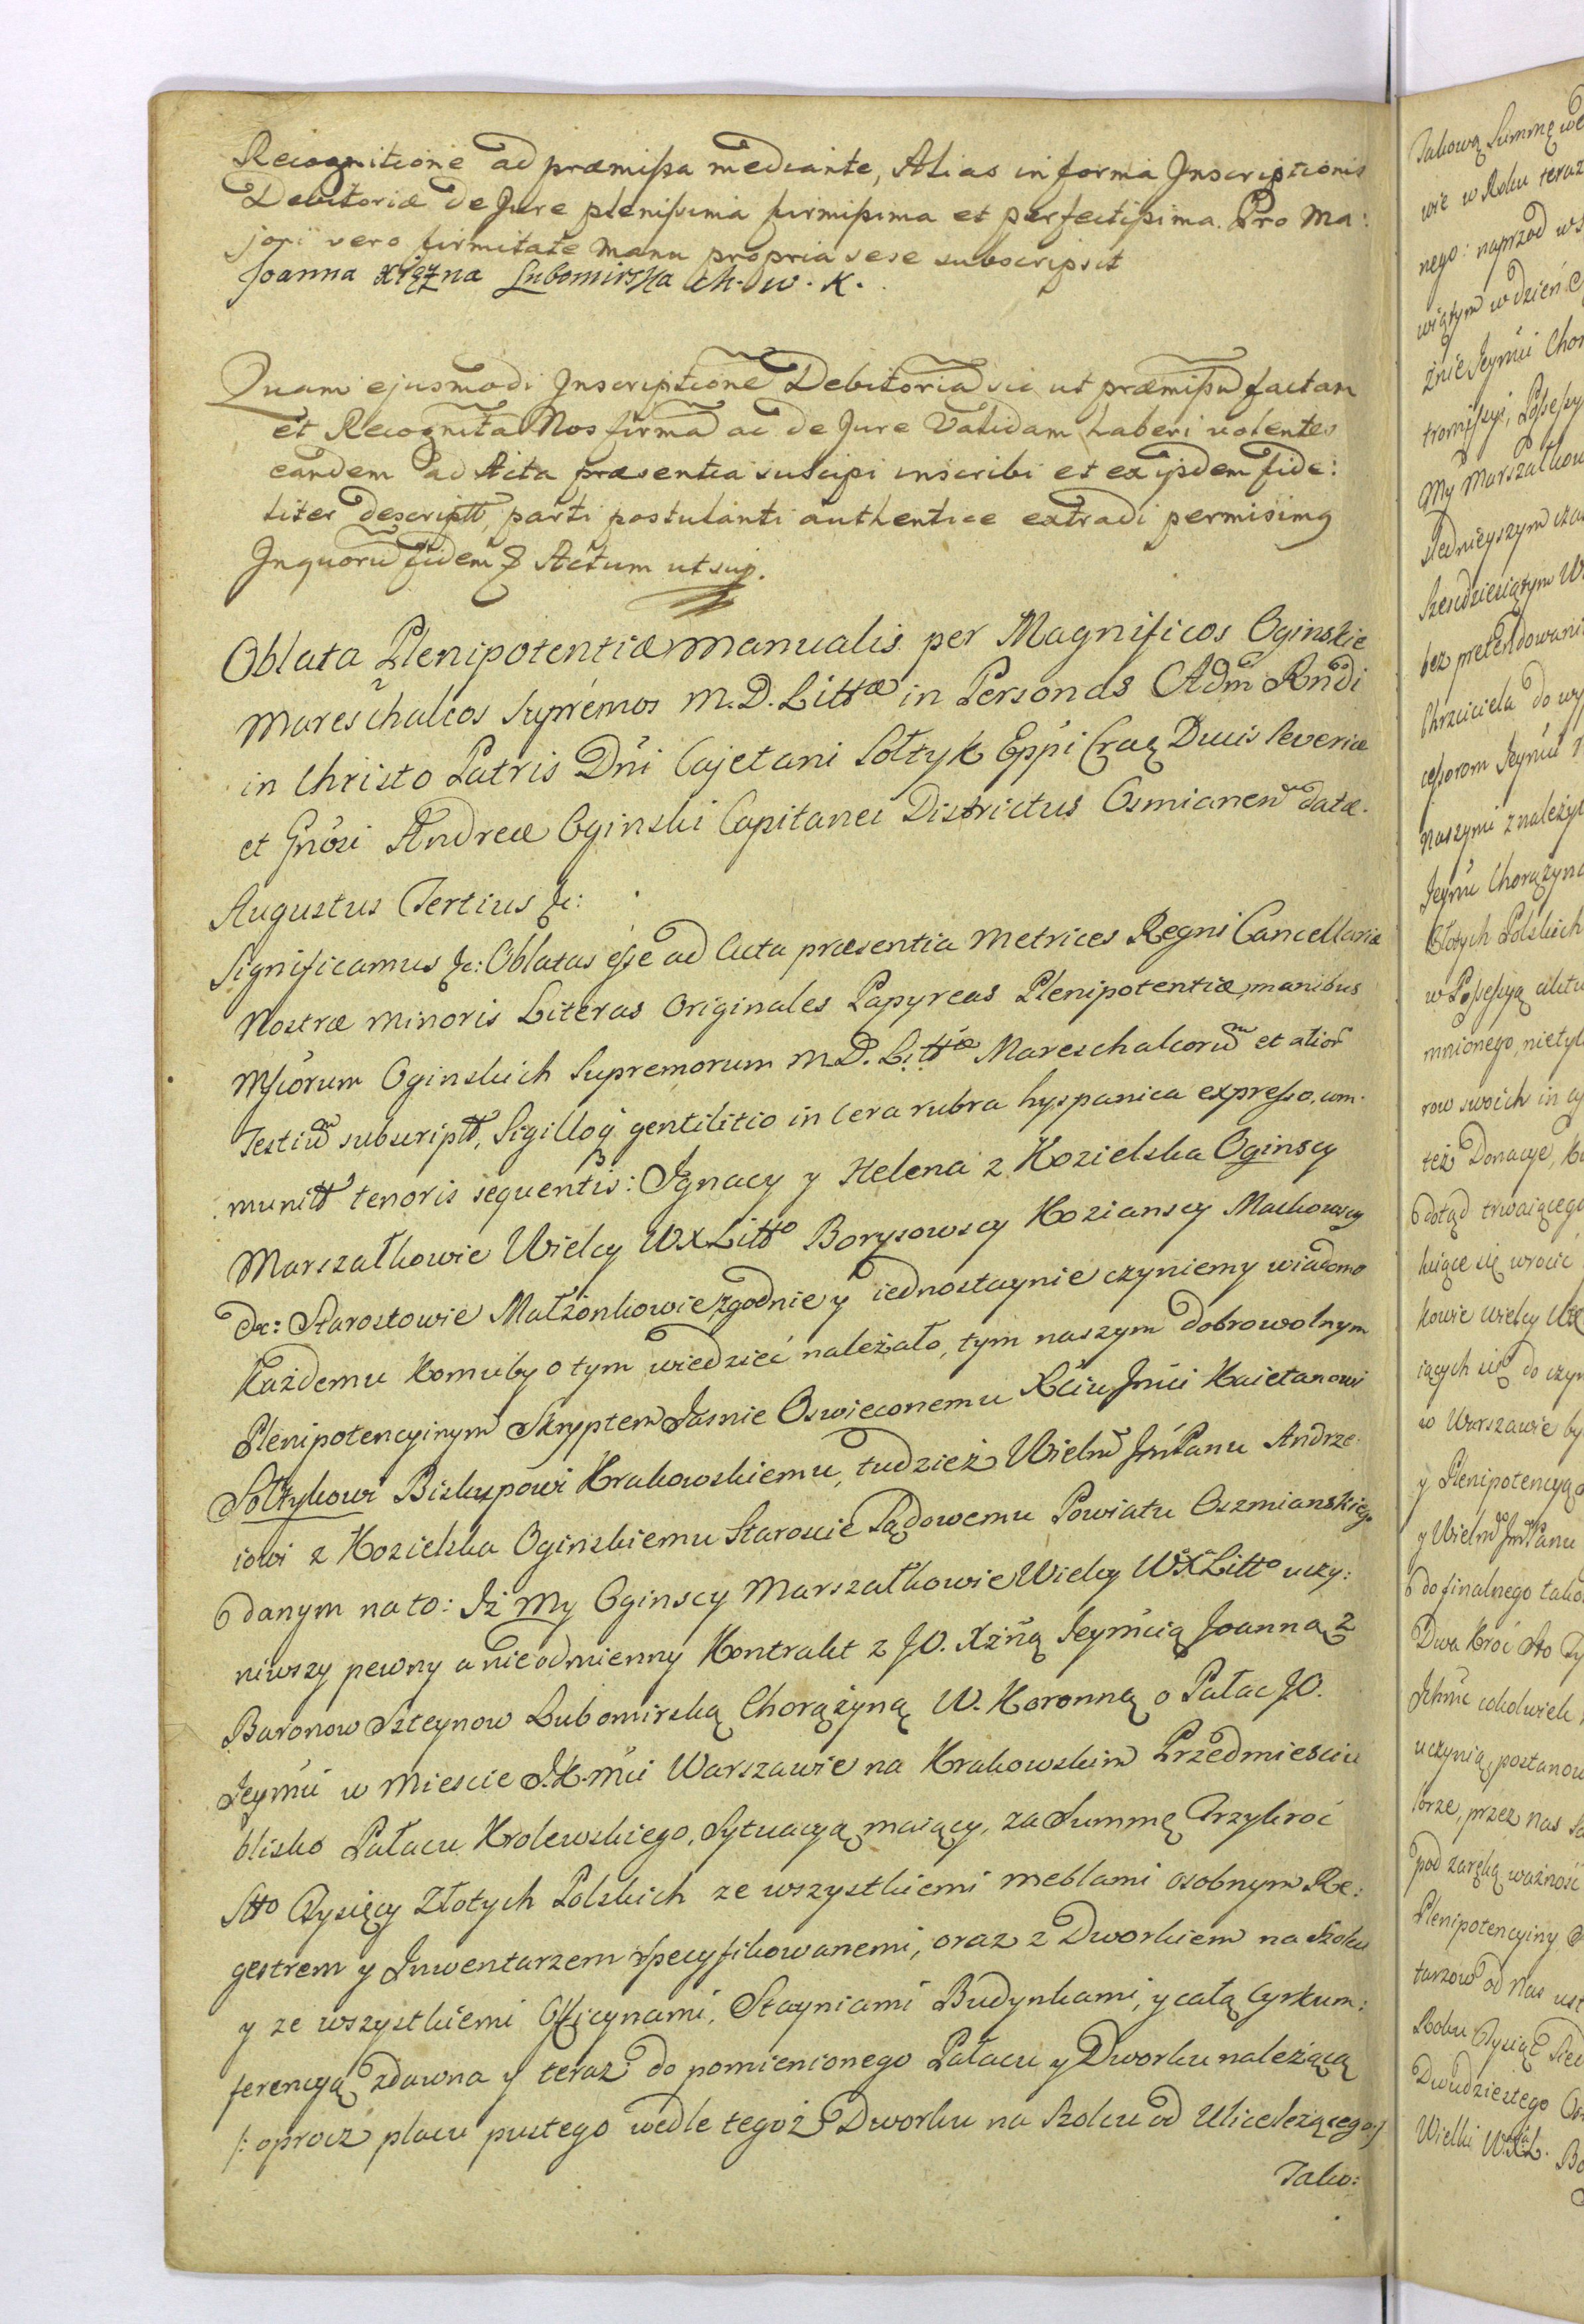 Recognitione ad præmissa mediante, Alias in forma Inscriptionis
Debitoriæ de Jure plenissima firmissima et perfectissima. Pro Ma:
jori vero firmitate manu propria sese subscripsit
Joanna Xiężna Lubomirska Ch. W. K.
Quam ejusmodi Inscriptione Debitoria sic ut præmissu factam
et Recognita Nos firma ac de Jure Validam haberi volentes
eandem ad Acta præsentia suscipi inscribi et ex ijsdem fide:
liter descriptt, parti postulanti authentice extradi permisimq
In quoru fidem & Actum ut sup.
Oblata Plenipotentiæ manualis per Magnificos Oginskie
Mareschalcos Supremos M. D. Littæ in Personas Adm Rndi
in Christo Patris Dni Cajetani Sołtyk Eppi Crac Ducis Severiæ
et Gnosi Andreæ Oginski Capitanei Districtus Osmianen datæ.
Augustus Tertius &c:
Significamus &c: Oblatas esse ad Acta præsentia Metrices Regni Cancellariæ
Nostræ Minoris Literas Originales Papyreas Plenipotentiæ, manibus
Mscorum Oginskich Supremorum M. D. Littæ Mareschalcoru et alior
Testiu subscriptt, Sigilloq gentilitio in cera rubra hyspanica expresso, com:
munitt tenoris sequentis: Ignacy y Helena z Kozielska Oginscy
Marszałkowie Wielcy W X Litto Borysowscy Kozianscy Machowscy
&c: Starostowie Małżonkowie, zgodnie y iednostaynie czyniemy wiadomo
Każdemu komuby o tym wiedzieć należało, tym naszym dobrowolnym
Plenipotencyinym Skryptem Jasnie Oswieconemu Xciu Jmci Kaietanowi
Sołtykowi Biskupowi Krakowskiemu, tudzież Wielm JmPanu Andrze:
iowi z Kozielska Oginskiemu Staroscie Sądowemu Powiatu Oszmianskiego
danym na to: Iż My Oginscy Marszałkowie Wielcy W X Litto uczy:
niwszy pewny a nieodmienny Kontrakt z JO. Xżną Jeymcią Joanną z
Baronow Szteynow Lubomirską Chorążyną W. Koronną o Pałac JO.
Jeymci w Miescie J.K.Mci Warszawie na Krakowskim Przedmiesciu
blisko Pałacu Krolewskiego, Sytuacyą maiący, za Summę Trzykroć
Stto Tysięcy Złotych Polskich ze wszystkiemi meblami osobnym Re:
gestrem y Inwentarzem specyfikowanemi, oraz z Dworkiem na Szolcu
y ze wszystkiemi Officynami, Stayniami Budynkami, y całą Cyrkum:
ferencyą zdawna y teraz do pomienionego Pałacu y Dworku należącą
/: oprocz placu pustego wedle tegoż Dworku na Szolcu od Ulice leżącego :/
Tako:
Takową Summę we
wie w Roku teraz
nego: naprzod w s
wiątym w dzień
żnie Jeymci Chor
tromissyi, Possessy
My Marszałkow
siednieyszym cza
Szescdziesiątym W
bez pretendowani
Chrzciciela do wy
cessorom Jeymci
Naszymi z należyt
Jeymci Chorążyna
Złotych Polskich
w Possessyą
mnionego, nietyl
row swoich in
też Donacye,
dotąd trwaiącego
kuiące się wrocić
kowie wielcy
iących się do czyn
w Warszawie by
y Plenipotencyą
y Wielm JmPanu
do finalnego tako
Dwa Kroć Sto Ty
Ichmc cokolwiek
uczynią, postanow
brze, przez nas
pod zaręką ważność
Plenipotencyiny
tarzow od nas ust
Roku Tysiąc Sied
Dwudziestego
Wielki W.X.L. Bo